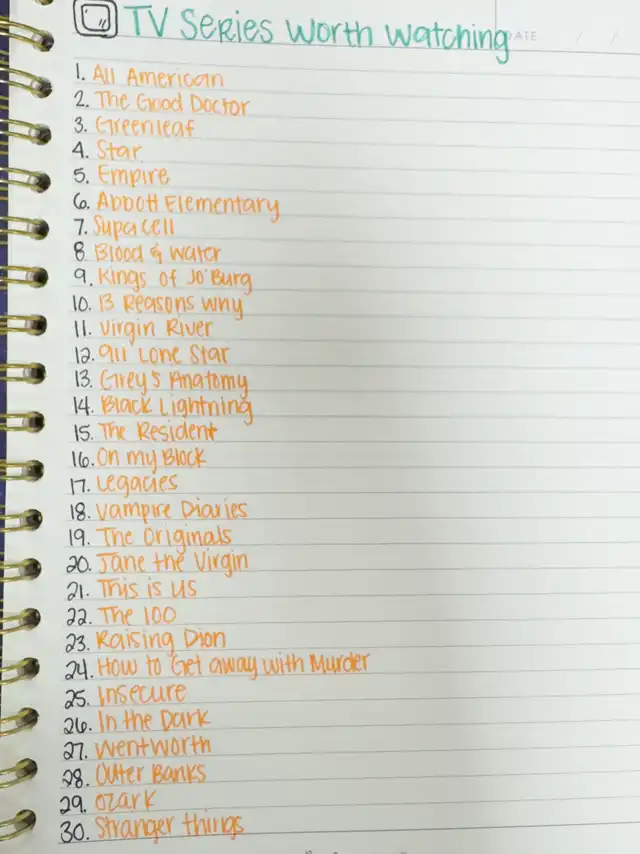 TV Series Worth Watching
DATE / /
1. All American
2. The Good Doctor
3. Greenleaf
4. Star
5. Empire
6. Abbott Elementary
7. Supacell
8. Blood & Water
9. Kings of Jo'Burg
10. 13 Reasons Why
11. Virgin River
12. 911 Lone Star
13. Grey's Anatomy
14. Black Lightning
15. The Resident
16. On my Block
17. Legacies
18. Vampire Diaries
19. The Originals
20. Jane the Virgin
21. This is us
22. The 100
23. Raising Dion
24. How to Get away with Murder
25. Insecure
26. In the Dark
27. Wentworth
28. Outer Banks
29. Ozark
30. Stranger things